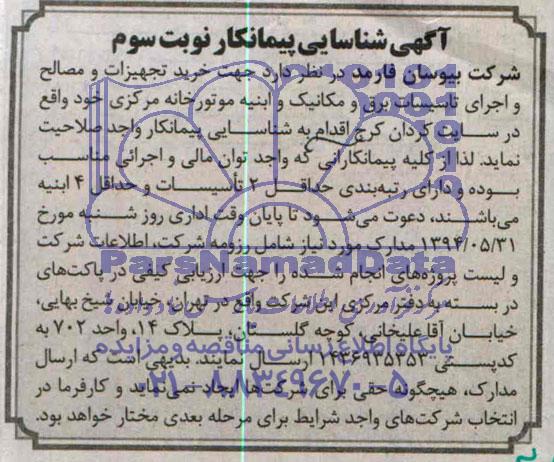 آگهی شناسایی پیمانکار نوبت سوم
شرکت بیوسان فارمد در نظر دارد جهت خرید تجهیزات و مصالح
و اجرای تاسیسات برق و مکانیک و ابنیه موتورخانه مرکزی خود واقع
در سایت کردان کرج اقدام به شناسایی پیمانکار واجد صلاحیت
نماید. لذا از کلیه پیمانکارانی که واجد توان مالی و اجرائی مناسب
بوده و دارای رتبه‌بندی حداقل ۲ تأسیسات و حداقل ۴ ابنیه
می‌باشند، دعوت می‌شود تا پایان وقت اداری روز شنبه مورخ
۱۳۹۴/۰۵/۳۱ مدارک مورد نیاز شامل رزومه شرکت، اطلاعات شرکت
و لیست پروژه‌های انجام شده را جهت ارزیابی کیفی در پاکت‌های
در بسته به دفتر مرکزی این شرکت واقع در تهران، خیابان شیخ بهایی،
خیابان آقاعلیخانی، کوچه گلستان، پلاک ۱۴، واحد ۷۰۲ به
کدپستی ۱۴۳۶۹۳۵۳۵۳ ارسال نمایند. بدیهی است که ارسال
مدارک، هیچگونه حقی برای شرکت‌ها ایجاد نمی‌نماید و کارفرما در
انتخاب شرکت‌های واجد شرایط برای مرحله بعدی مختار خواهد بود.
ParsNamadData
پایگاه اطلاع رسانی مناقصه و مزایده
۰۲۱-۸۸۳۴۹۶۷۰-۵